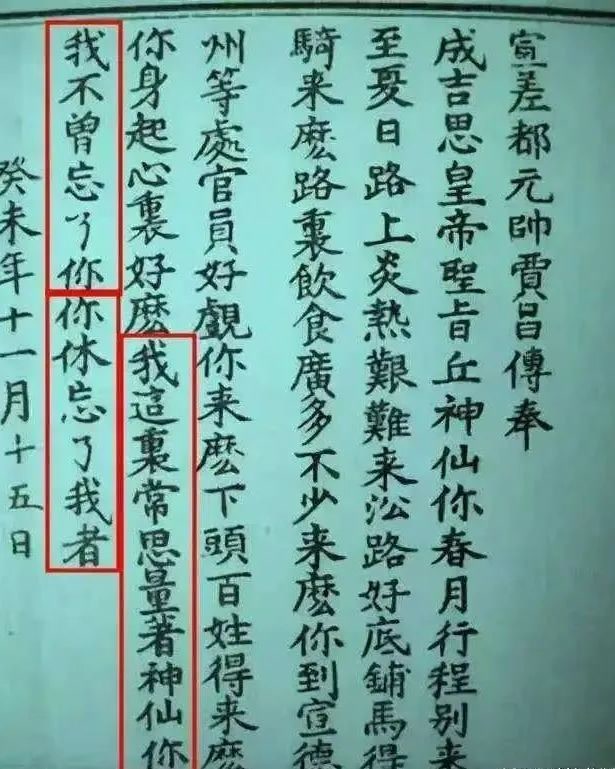 宣差都元帥賈昌傳奉
成吉思皇帝聖旨丘神仙你春月行程别来
至夏日路上炎熱艱難来沿路好底鋪馬得
騎来麽路裏飲食廣多不少来麽你到宣德
州等處官員好覷你来麽下頭百姓得来麽
你身起心裏好麽我這裏常思量著神仙你
我不曾忘了你你休忘了我者
癸未年十一月十五日